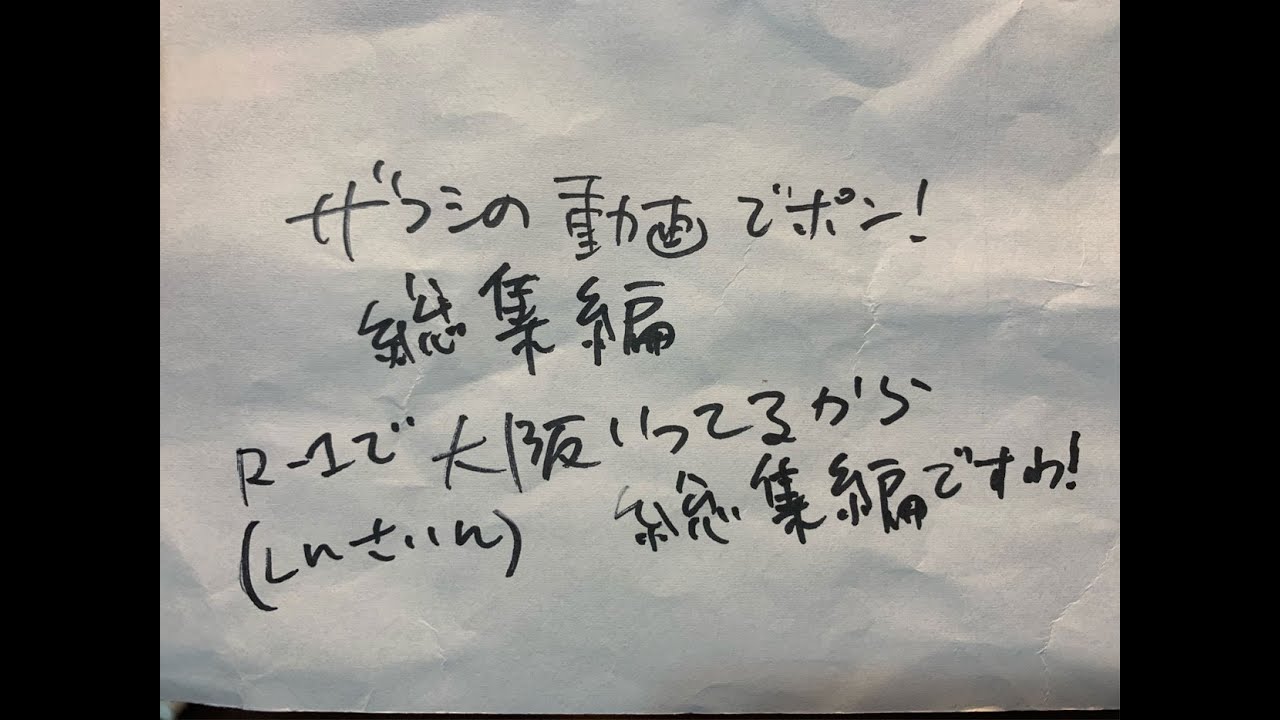 ザコシの動画でポン!
総集編
R-1で大阪いってるから
(しんさいん) 総集編ですわ!